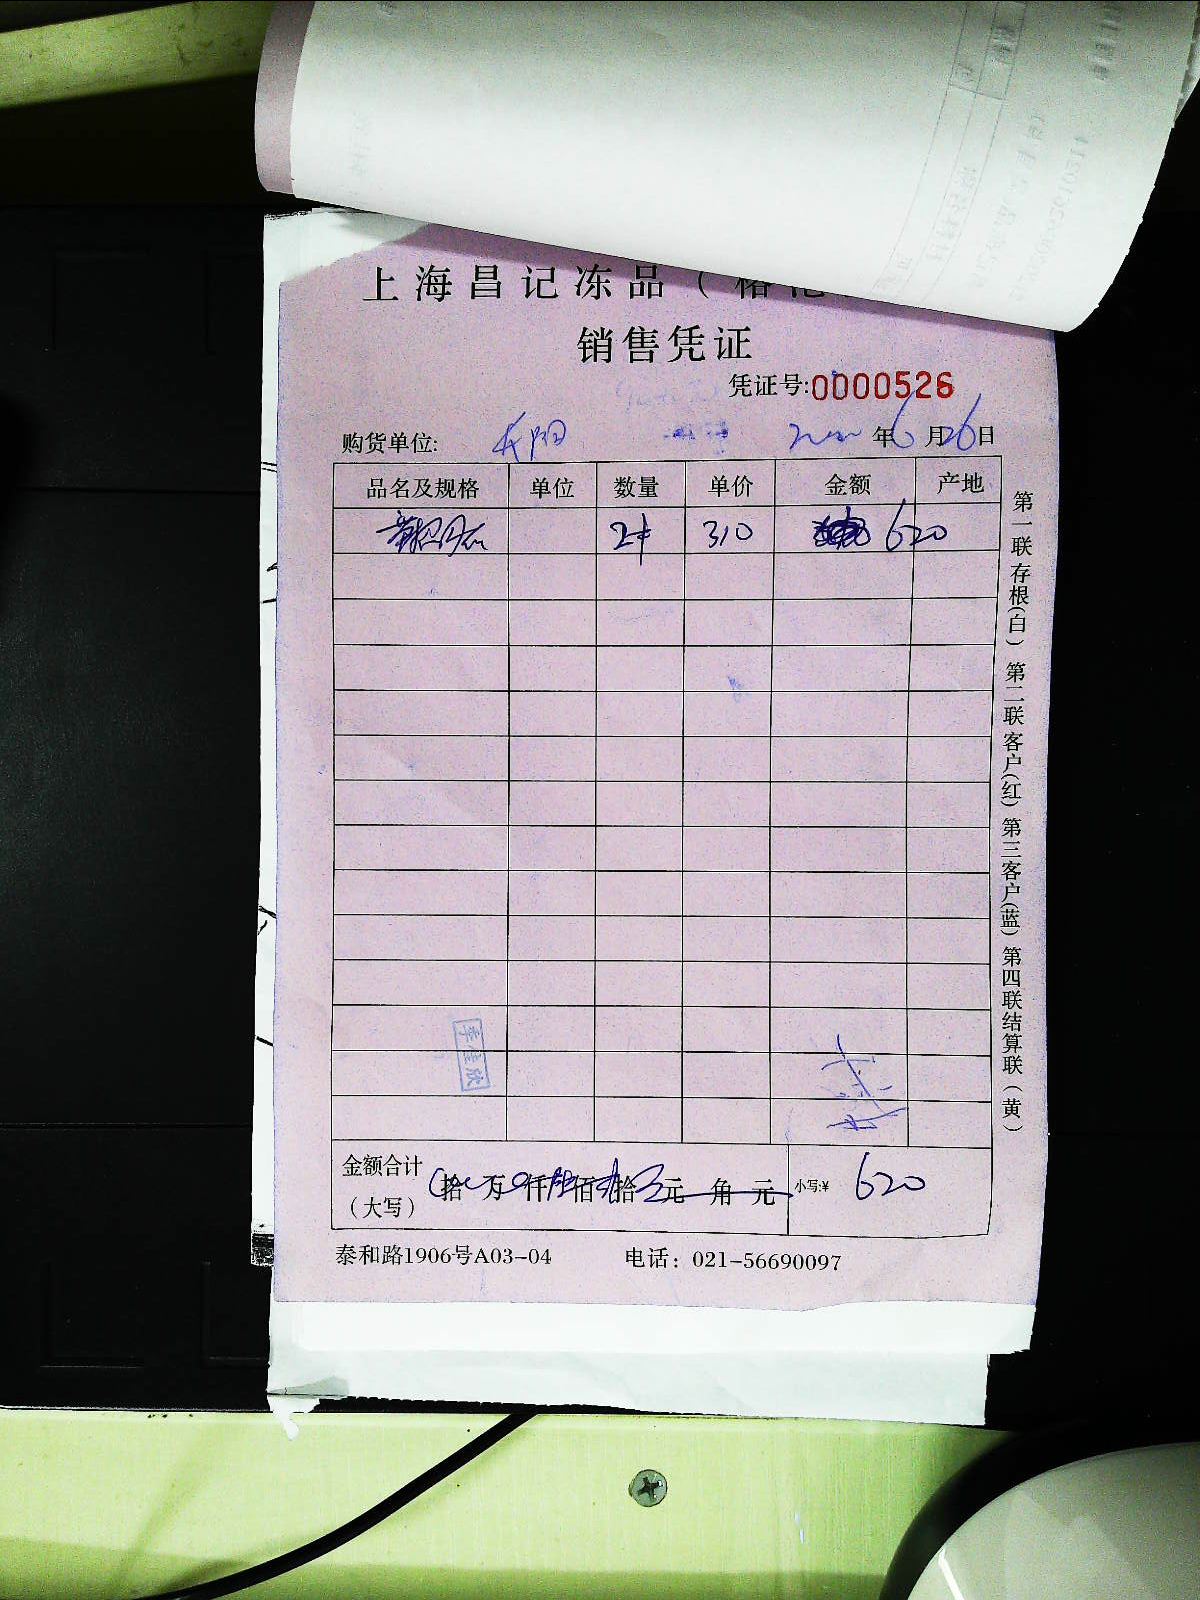 上海昌记冻品（格
销售凭证
凭证号:0000526
购货单位: 年6月26日
品名及规格 单位 数量 单价 金额 产地
2件 310 620
第一联存根(白) 第二联客户(红) 第三客户(蓝) 第四联结算联（黄）
李佳欣
金额合计 拾 万 仟 佰 拾 元 角 元 小写:¥ 620
（大写）
泰和路1906号A03-04 电话：021-56690097